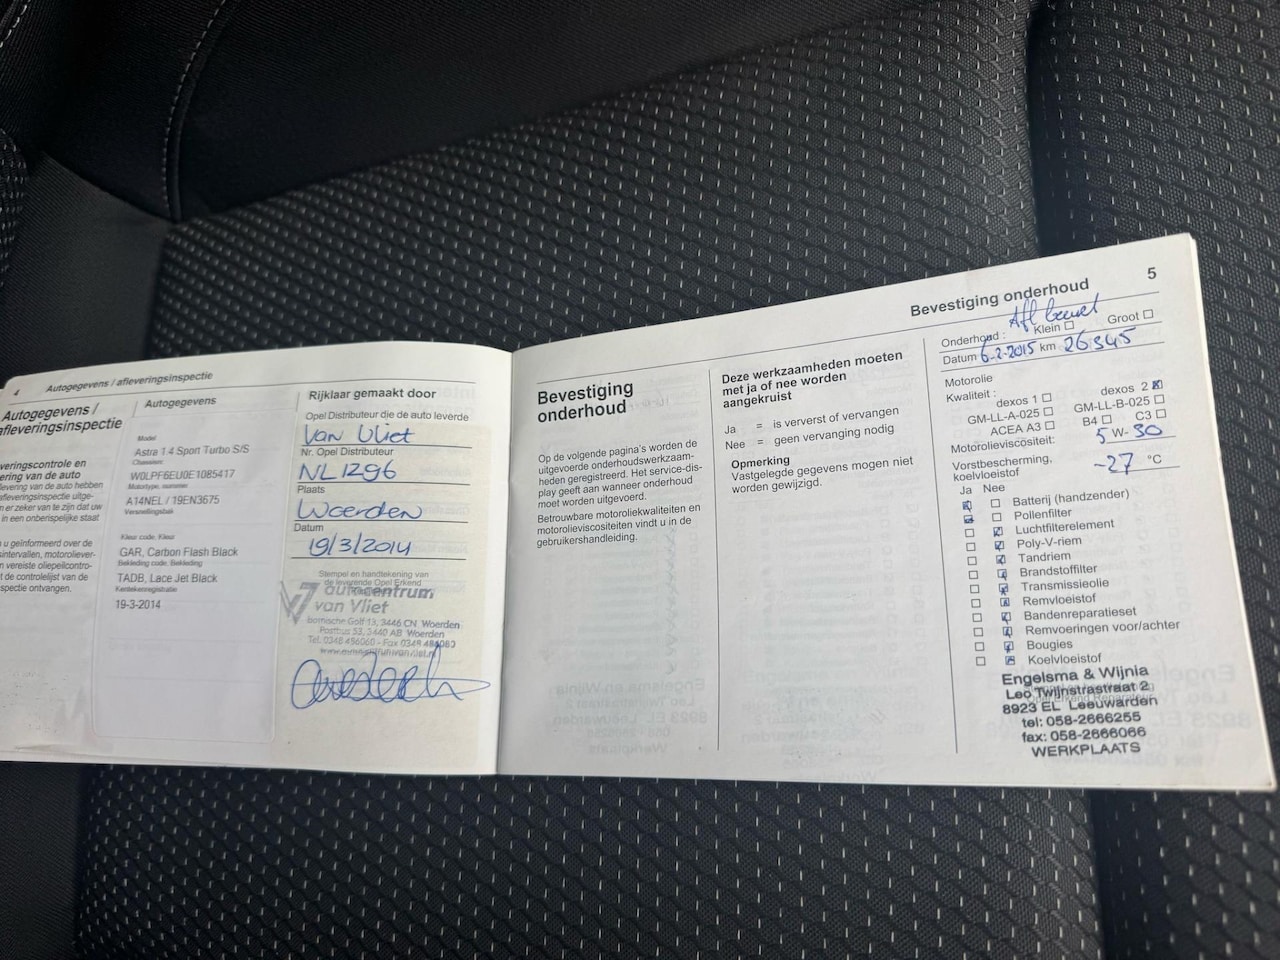 4 Autogegevens / afleveringsinspectie
Autogegevens /
afleveringsinspectie
veringscontrole en
ering van de auto
levering van de auto hebben
afleveringsinspectie uitge-
n er zeker van te zijn dat uw
in een onberispelijke staat
u geïnformeerd over de
intervallen, motorolievers-
n vereiste oliepeilcontro-
t de controlelijst van de
spectie ontvangen.
Autogegevens
Model
Astra 1.4 Sport Turbo S/S
W0LPF6EU0E1085417
Motortype, nummer
A14NEL / 19EN3675
Versnellingsbak
Kleur code, Kleur
GAR, Carbon Flash Black
Bekleding code, Bekleding
TADB, Lace Jet Black
Kentekenregistratie
19-3-2014
Rijklaar gemaakt door
Opel Distributeur die de auto leverde
Van Vliet
Nr. Opel Distributeur
NL1296
Plaats
Woerden
Datum
19/3/2014
Stempel en handtekening van
de leverende Opel Erkend
autocentrum
van Vliet
3446 CN Woerden
Postbus 53, 3440 AB Woerden
Bevestiging
onderhoud
Op de volgende pagina's worden de
uitgevoerde onderhoudswerkzaam-
heden geregistreerd. Het service-dis-
play geeft aan wanneer onderhoud
moet worden uitgevoerd.
Betrouwbare motoroliekwaliteiten en
motorolieviscositeiten vindt u in de
gebruikershandleiding.
Deze werkzaamheden moeten
met ja of nee worden
aangekruist
Ja = is ververst of vervangen
Nee = geen vervanging nodig
Opmerking
Vastgelegde gegevens mogen niet
worden gewijzigd.
Bevestiging onderhoud 5
Afl beurt
Onderhoud : Klein Groot
Datum 6-2-2015 km 26345
Motorolie
Kwaliteit :
dexos 1 dexos 2
GM-LL-A-025 GM-LL-B-025
ACEA A3 B4 C3
Motorolieviscositeit: 5 W- 30
Vorstbescherming,
koelvloeistof -27 °C
Ja Nee
Batterij (handzender)
Pollenfilter
Luchtfilterelement
Poly-V-riem
Tandriem
Brandstoffilter
Transmissieolie
Remvloeistof
Bandenreparatieset
Remvoeringen voor/achter
Bougies
Koelvloeistof
Engelsma & Wijnia
Leo Twijnstrastraat 2
8923 EL Leeuwarden
tel: 058-2666255
fax: 058-2666066
WERKPLAATS